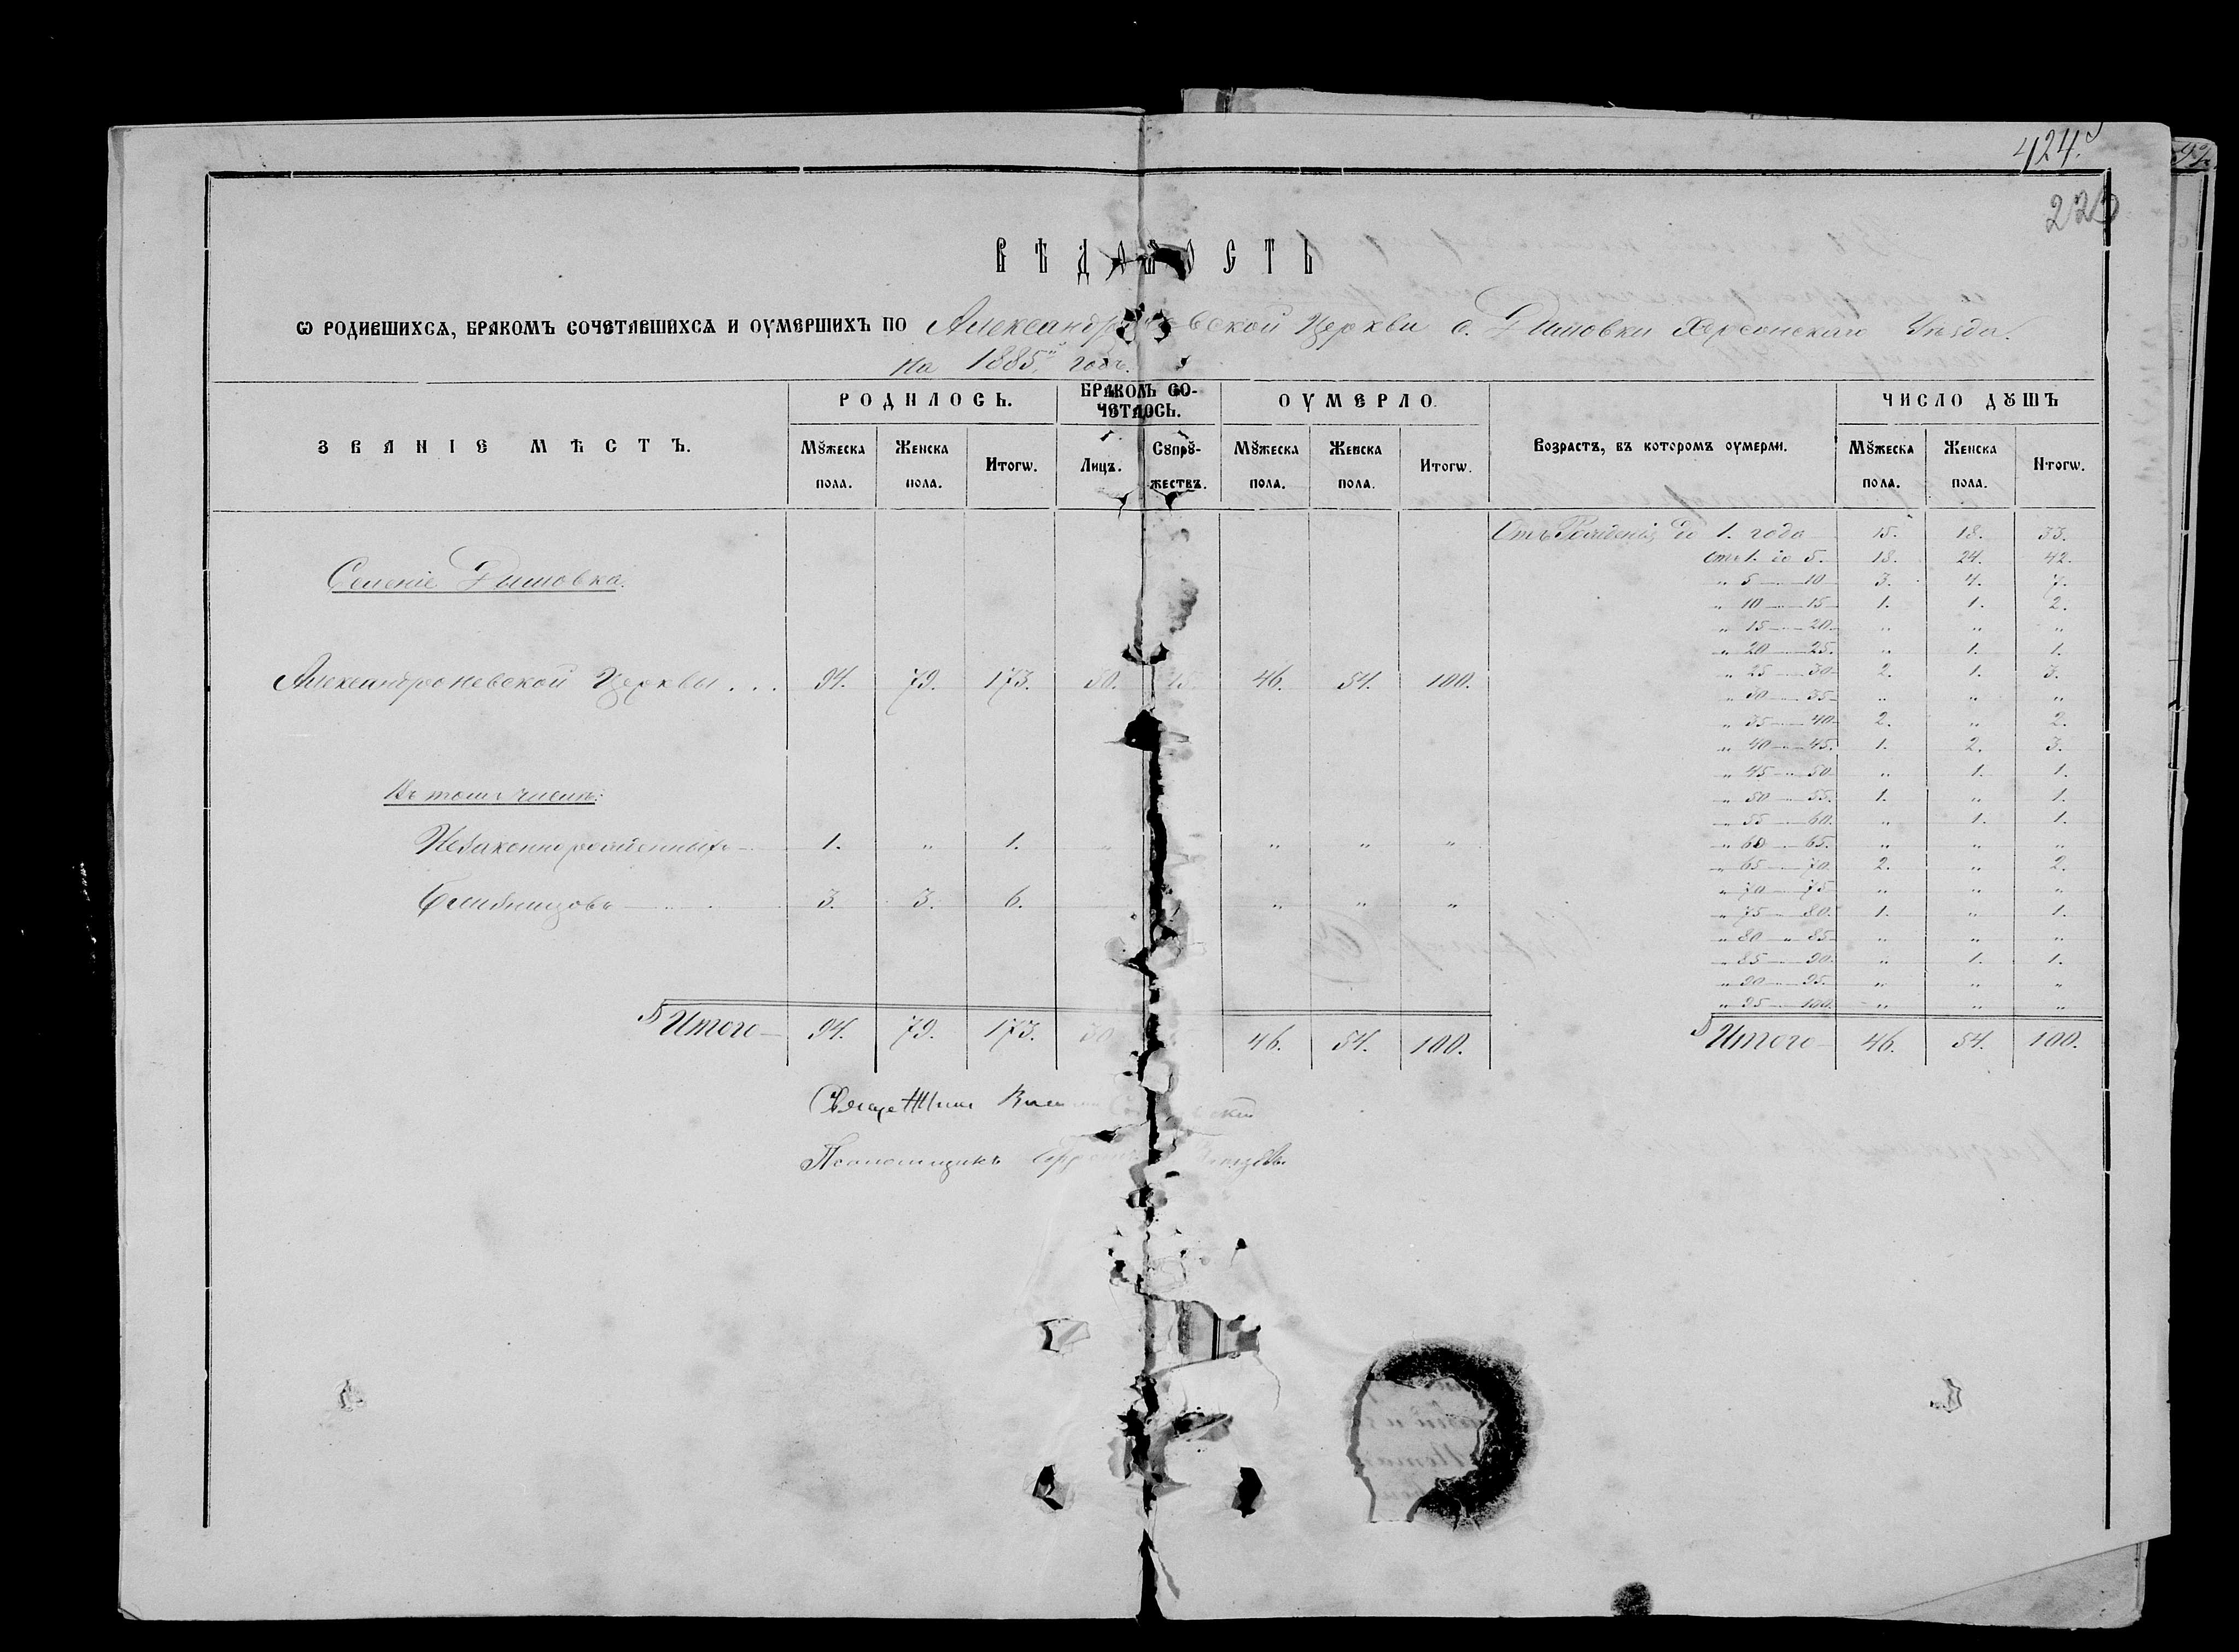 424.
ВѢДОМОСТЬ
Ѡ РОДИВШИХСѦ, БРАКОМЪ СОЧЕТАВШИХСѦ И ОУМЕРШИХЪ ПО Александро Невской Церкви с. Дымовки Херсонскаго Уѣзда.
на 1885й годъ.
ЗВАНІЕ МѢСТЪ. РОДИЛОСЬ. БРАКОМЪ СО- ОУМЕРЛО. Возрастъ, въ которомъ оумерли. ЧИСЛО ДꙊШЪ
ЧЕТАЛОСЬ.
Мꙋжеска Женска Итогѡ. Лицъ. Сопрꙋ- Мꙋжеска Женска Итогѡ. Мꙋжеска Женска Итогѡ.
пола. пола. жествъ. пола. пола. пола. пола.
Отъ Рожденія до 1. года 15. 18. 33.
Отъ 1. до 5. 18. 24. 42.
Селеніе Дымовка.
" 5 — " — 10 3. 4. 7.
" 10 — " — 15 1. 1. 2.
" 15 — " — 20. " " "
" 20 — " — 25. " 1. 1.
Александроневской Церквы . . . 94. 79. 173. 50. 25. 46. 54. 100.
" 25 — " — 30 2. 1. 3.
" 30 — " — 35 " " "
" 35 — " — 40 2. " 2.
" 40 — " — 45. 1. 2. 3.
" 45 — " — 50 " 1. 1.
Въ томъ числѣ:
" 50 — " — 55. 1. " 1.
" 55 — " — 60. " 1. 1.
Незаконнорожденныхъ — 1. " 1. " " " "
" 60 — " — 65. " " "
" 65 — " — 70. 2. " 2.
" 70 — " — 75 " " "
Близнецовъ — 3. 3. 6. " " "
" 75 — " — 80. 1. " 1.
" 80 — " — 85 " " "
" 85 — " — 90. " 1. 1.
" 90 — " — 95. " " "
" 95 — " — 100. " " "
Итого — 94. 79. 173. 50 46. 54. 100.
Итого — 46. 54. 100.
Псаломщикъ